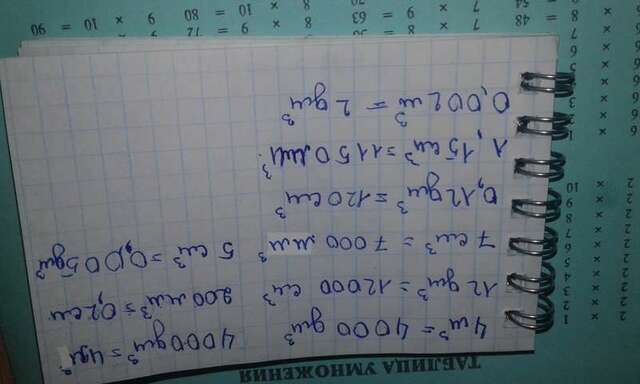 ТАБЛИЦА УМНОЖЕНИЯ
4 м³ = 4000 дм³
12 дм³ = 12000 см³
7 см³ = 7000 мм³
0,12 дм³ = 120 см³
1,15 см³ = 1150 мм³
0,002 м³ = 2 дм³
4000 дм³ = 4
200 мм³ = 0,2 см
5 см³ = 0,005 дм³
2 × 1
2 × 2
2 × 3
2 × 4
2 × 5
2 × 6
2 × 7
2 × 8
2 × 9
2 × 10
6 × 1
6 × 2
6 × 3
6 × 4
6 × 5
6 × 6
6 × 7
× 8 = 48
= 54
7 × 8 =
7 × 9 = 63
8 × 9 = 72
8 × 10 = 80
9 × 10 = 90